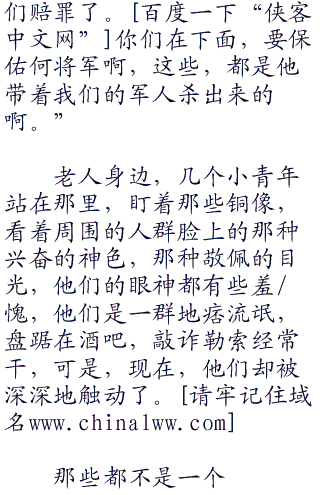 们赔罪了。[百度一下“侠客
中文网”]你们在下面，要保
佑何将军啊，这些，都是他
带着我们的军人杀出来的
啊。”
老人身边，几个小青年
站在那里，盯着那些铜像，
看着周围的人群脸上的那种
兴奋的神色，那种敬佩的目
光，他们的眼神都有些羞/
愧，他们是一群地痞流氓，
盘踞在酒吧，敲诈勒索经常
干，可是，现在，他们却被
深深地触动了。[请牢记住域
名www.china1ww.com]
那些都不是一个